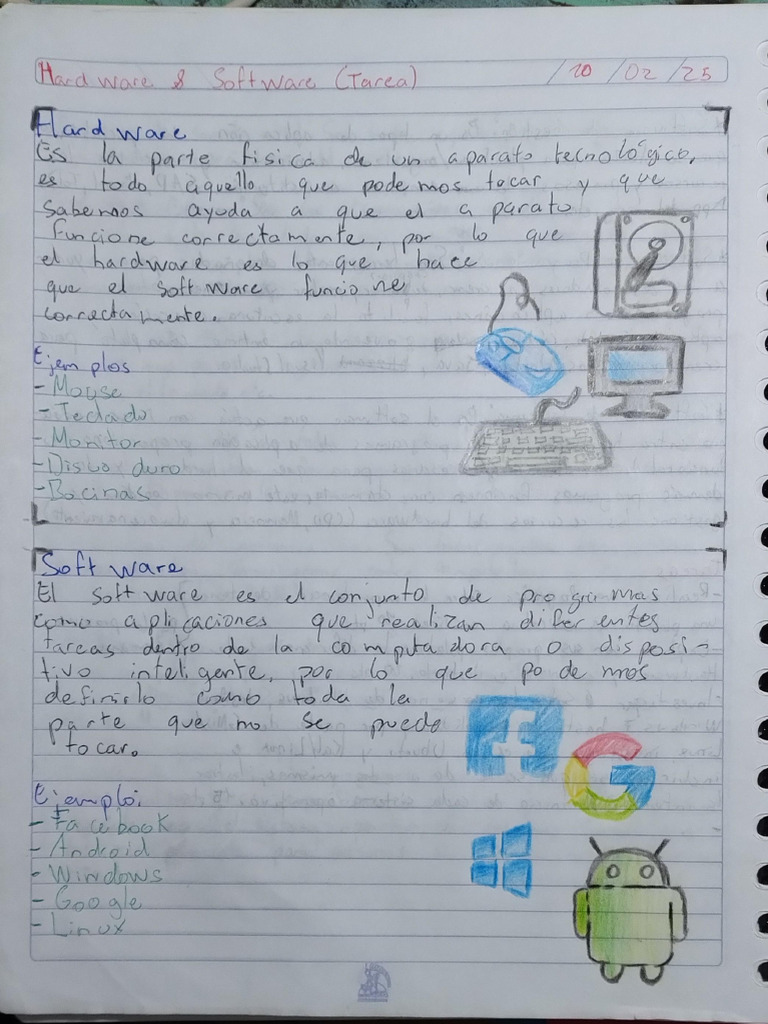 Hardware & Software (Tarea) /10/02/25
Hardware
Es la parte fisica de un aparato tecnológico,
es todo aquello que podemos tocar y que
sabemos ayuda a que el aparato
funcione correctamente, por lo que
el hardware es lo que hace
que el software funcione
correctamente.
Ejemplos
- Mouse
- Teclado
- Monitor
- Disco duro
- Bocinas
Software
El software es el conjunto de programas
como aplicaciones que realizan diferentes
tareas dentro de la computadora o disposi-
tivo inteligente, por lo que podemos
definirlo como toda la
parte que no se puede
tocar.
Ejemplo:
- Facebook
- Android
- Windows
- Google
- Linux